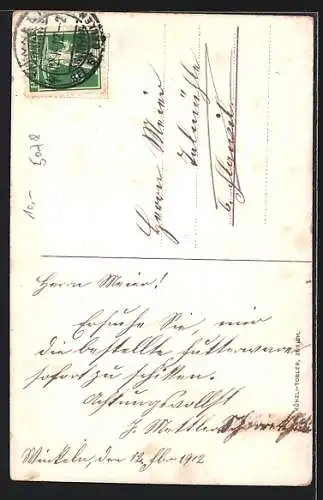 Herrn Meier
b. Flawil
5078
10,-
Herrn Meier!
Ersuche Sie, mir
die bestellte Futterware
sofort zu schiken.
Achtungsvollst
J. Mettler
Winkeln, den 12. 1912
KÜNZLI-TOBLER, ZÜRICH.